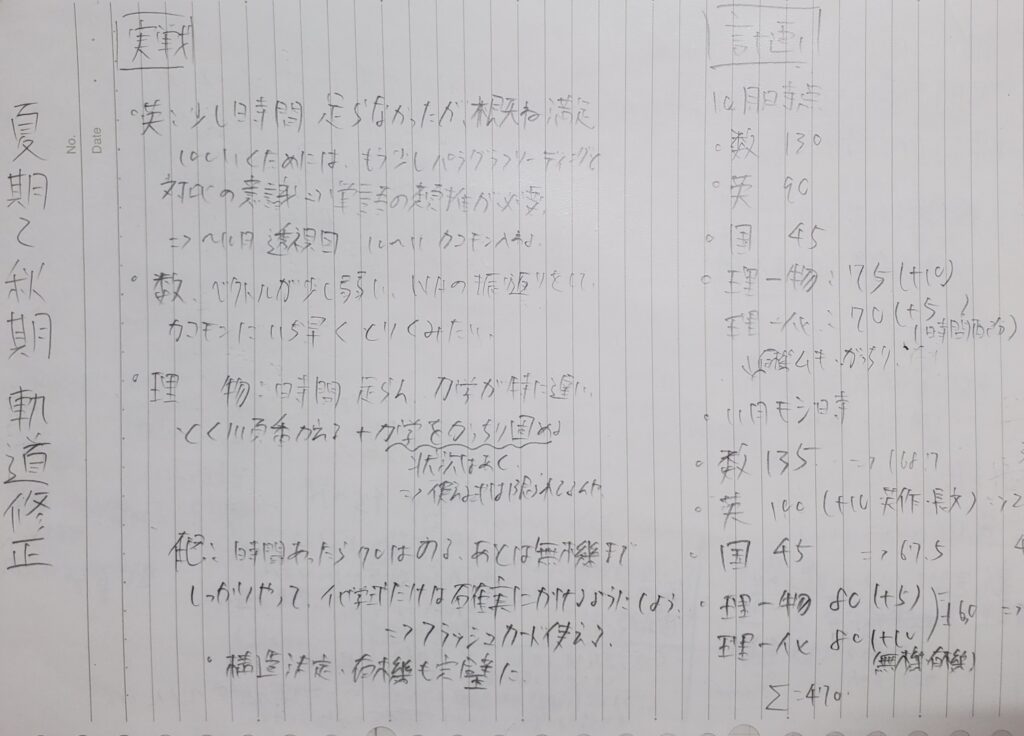 夏期と秋期 軌道修正
No.
Date
実戦
・英:少し時間 足らなかったが、概ね満足
100いくためには、もう少しパラグラフリーディングと
対比の意識⇒単語の類推が必要
⇒ ~10月 透視図 10~11 カコモン
・数、ベクトルが少し弱い、の振返りをして
カコモンにいち早くとりくみたい。
・理 物:時間 足らん 力学が特に遅い
とく順番かえる + 力学をがっちり固める
状況はあく
⇒
化:時間あったら70はある、あとは無機まで
しっかりやって、化学式だけは確実にかけるようにしよう
⇒フラッシュカード使える
・構造決定・有機も完璧に
計画
10月時点
・数 130
・英 90
・国 45
・理-物:75 (+10)
理-化:70 (+5
・11月モシ時
・数 135 ⇒168.7
・英 100 (+10 英作・長文) ⇒2
・国 45 ⇒67.5
・理-物 80 (+5)
理-化 80 (+10
=160 ⇒
(無機・有機)
Σ=470